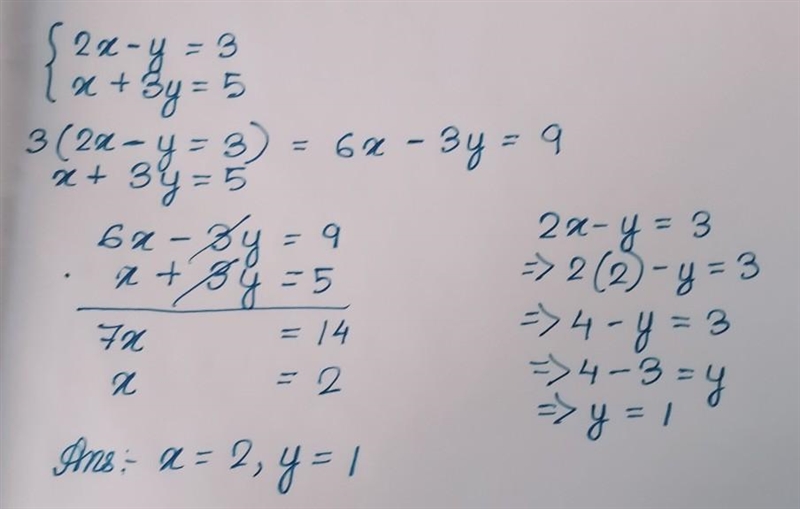 2x - y = 3
x + 3y = 5
3(2x - y = 3) = 6x - 3y = 9
x + 3y = 5
6x - 3y = 9
x + 3y = 5
7x = 14
x = 2
2x - y = 3
=> 2(2) - y = 3
=> 4 - y = 3
=> 4 - 3 = y
=> y = 1
Ans:- x = 2, y = 1